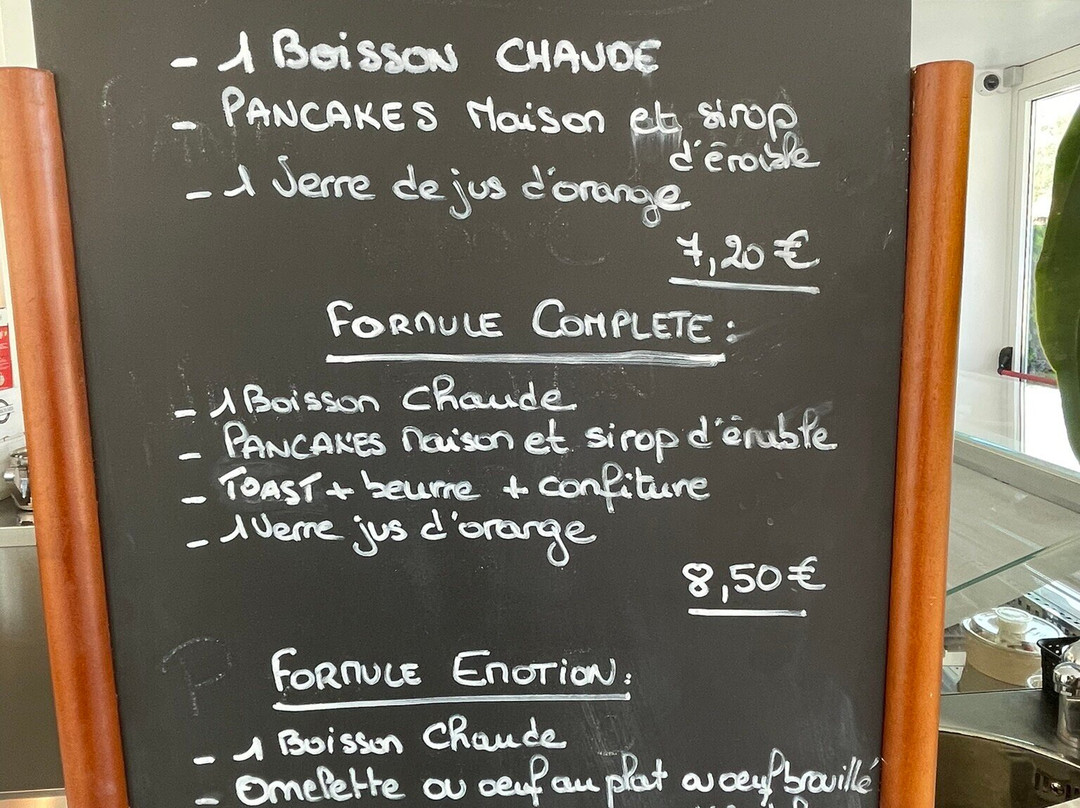 - 1 BOISSON CHAUDE
- PANCAKES Maison et sirop
d'érable
- 1 Verre de jus d'orange
7,20 €
FORMULE COMPLETE :
- 1 Boisson chaude
- PANCAKES maison et sirop d'érable
- TOAST + beurre + confiture
- 1 Verre jus d'orange
8,50 €
FORMULE EMOTION :
- 1 Boisson Chaude
- Omelette ou oeuf au plat ou oeuf brouillé